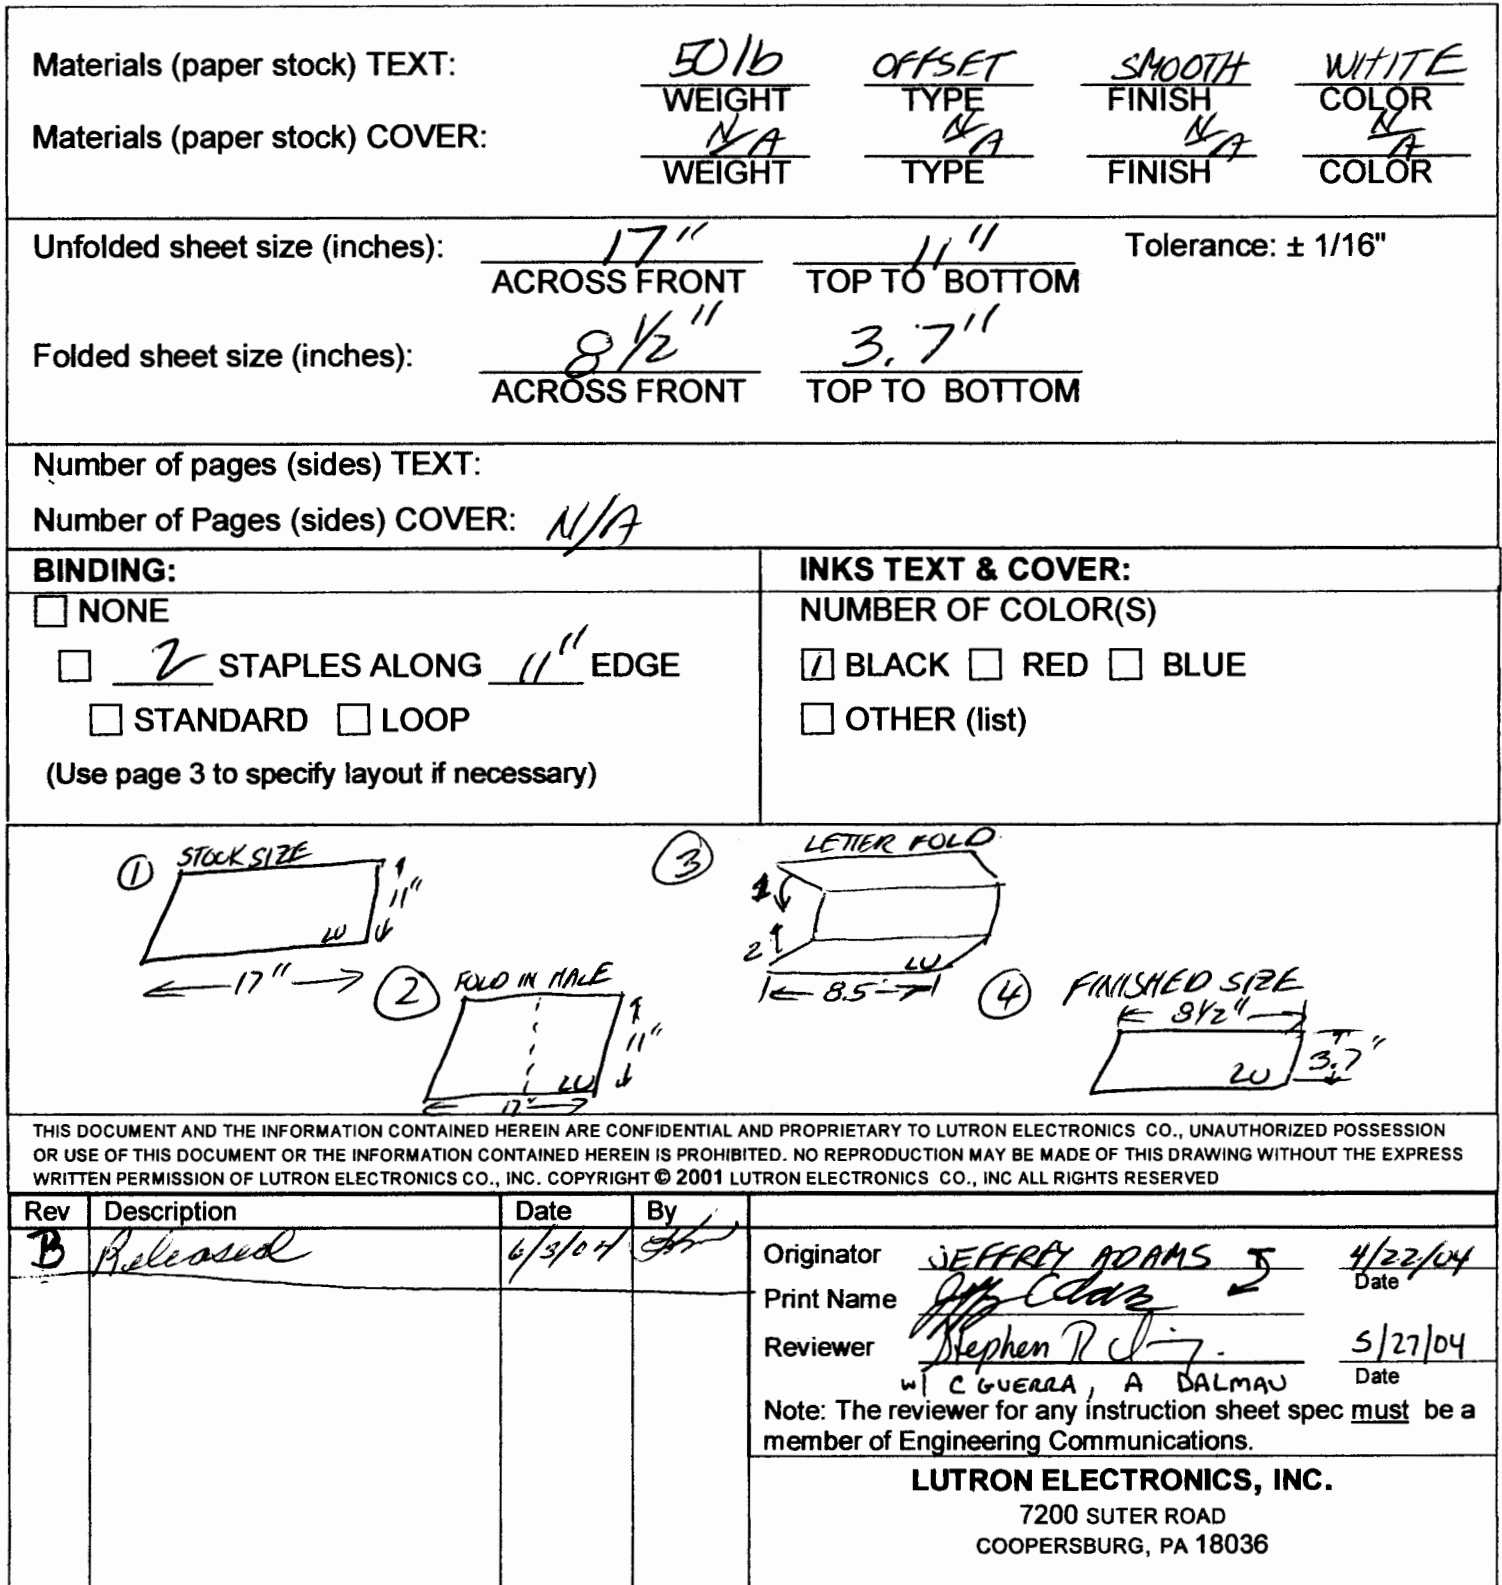 Materials (paper stock) TEXT: 50 lb OFFSET SMOOTH WHITE
WEIGHT TYPE FINISH COLOR
Materials (paper stock) COVER: N/A N/A N/A N/A
WEIGHT TYPE FINISH COLOR
Unfolded sheet size (inches): 17" 11" Tolerance: ± 1/16"
ACROSS FRONT TOP TO BOTTOM
Folded sheet size (inches): 8 1/2" 3.7"
ACROSS FRONT TOP TO BOTTOM
Number of pages (sides) TEXT:
Number of Pages (sides) COVER: N/A
BINDING:
NONE
2 STAPLES ALONG 11" EDGE
STANDARD LOOP
(Use page 3 to specify layout if necessary)
INKS TEXT & COVER:
NUMBER OF COLOR(S)
1 BLACK RED BLUE
OTHER (list)
1 STOCK SIZE
11"
LU
17"
2 FOLD IN HALF
11"
LU
17"
3 LETTER FOLD
1
2
LU
8.5"
4 FINISHED SIZE
8 1/2"
3.7"
LU
THIS DOCUMENT AND THE INFORMATION CONTAINED HEREIN ARE CONFIDENTIAL AND PROPRIETARY TO LUTRON ELECTRONICS CO., UNAUTHORIZED POSSESSION
OR USE OF THIS DOCUMENT OR THE INFORMATION CONTAINED HEREIN IS PROHIBITED. NO REPRODUCTION MAY BE MADE OF THIS DRAWING WITHOUT THE EXPRESS
WRITTEN PERMISSION OF LUTRON ELECTRONICS CO., INC. COPYRIGHT © 2001 LUTRON ELECTRONICS CO., INC ALL RIGHTS RESERVED
Rev Description Date By
B Released 6/3/04
Originator JEFFREY ADAMS 4/22/04
Date
Print Name
Reviewer Stephen R 5/27/04
Date
w/ C GUERRA, A DALMAU
Note: The reviewer for any instruction sheet spec must be a
member of Engineering Communications.
LUTRON ELECTRONICS, INC.
7200 SUTER ROAD
COOPERSBURG, PA 18036